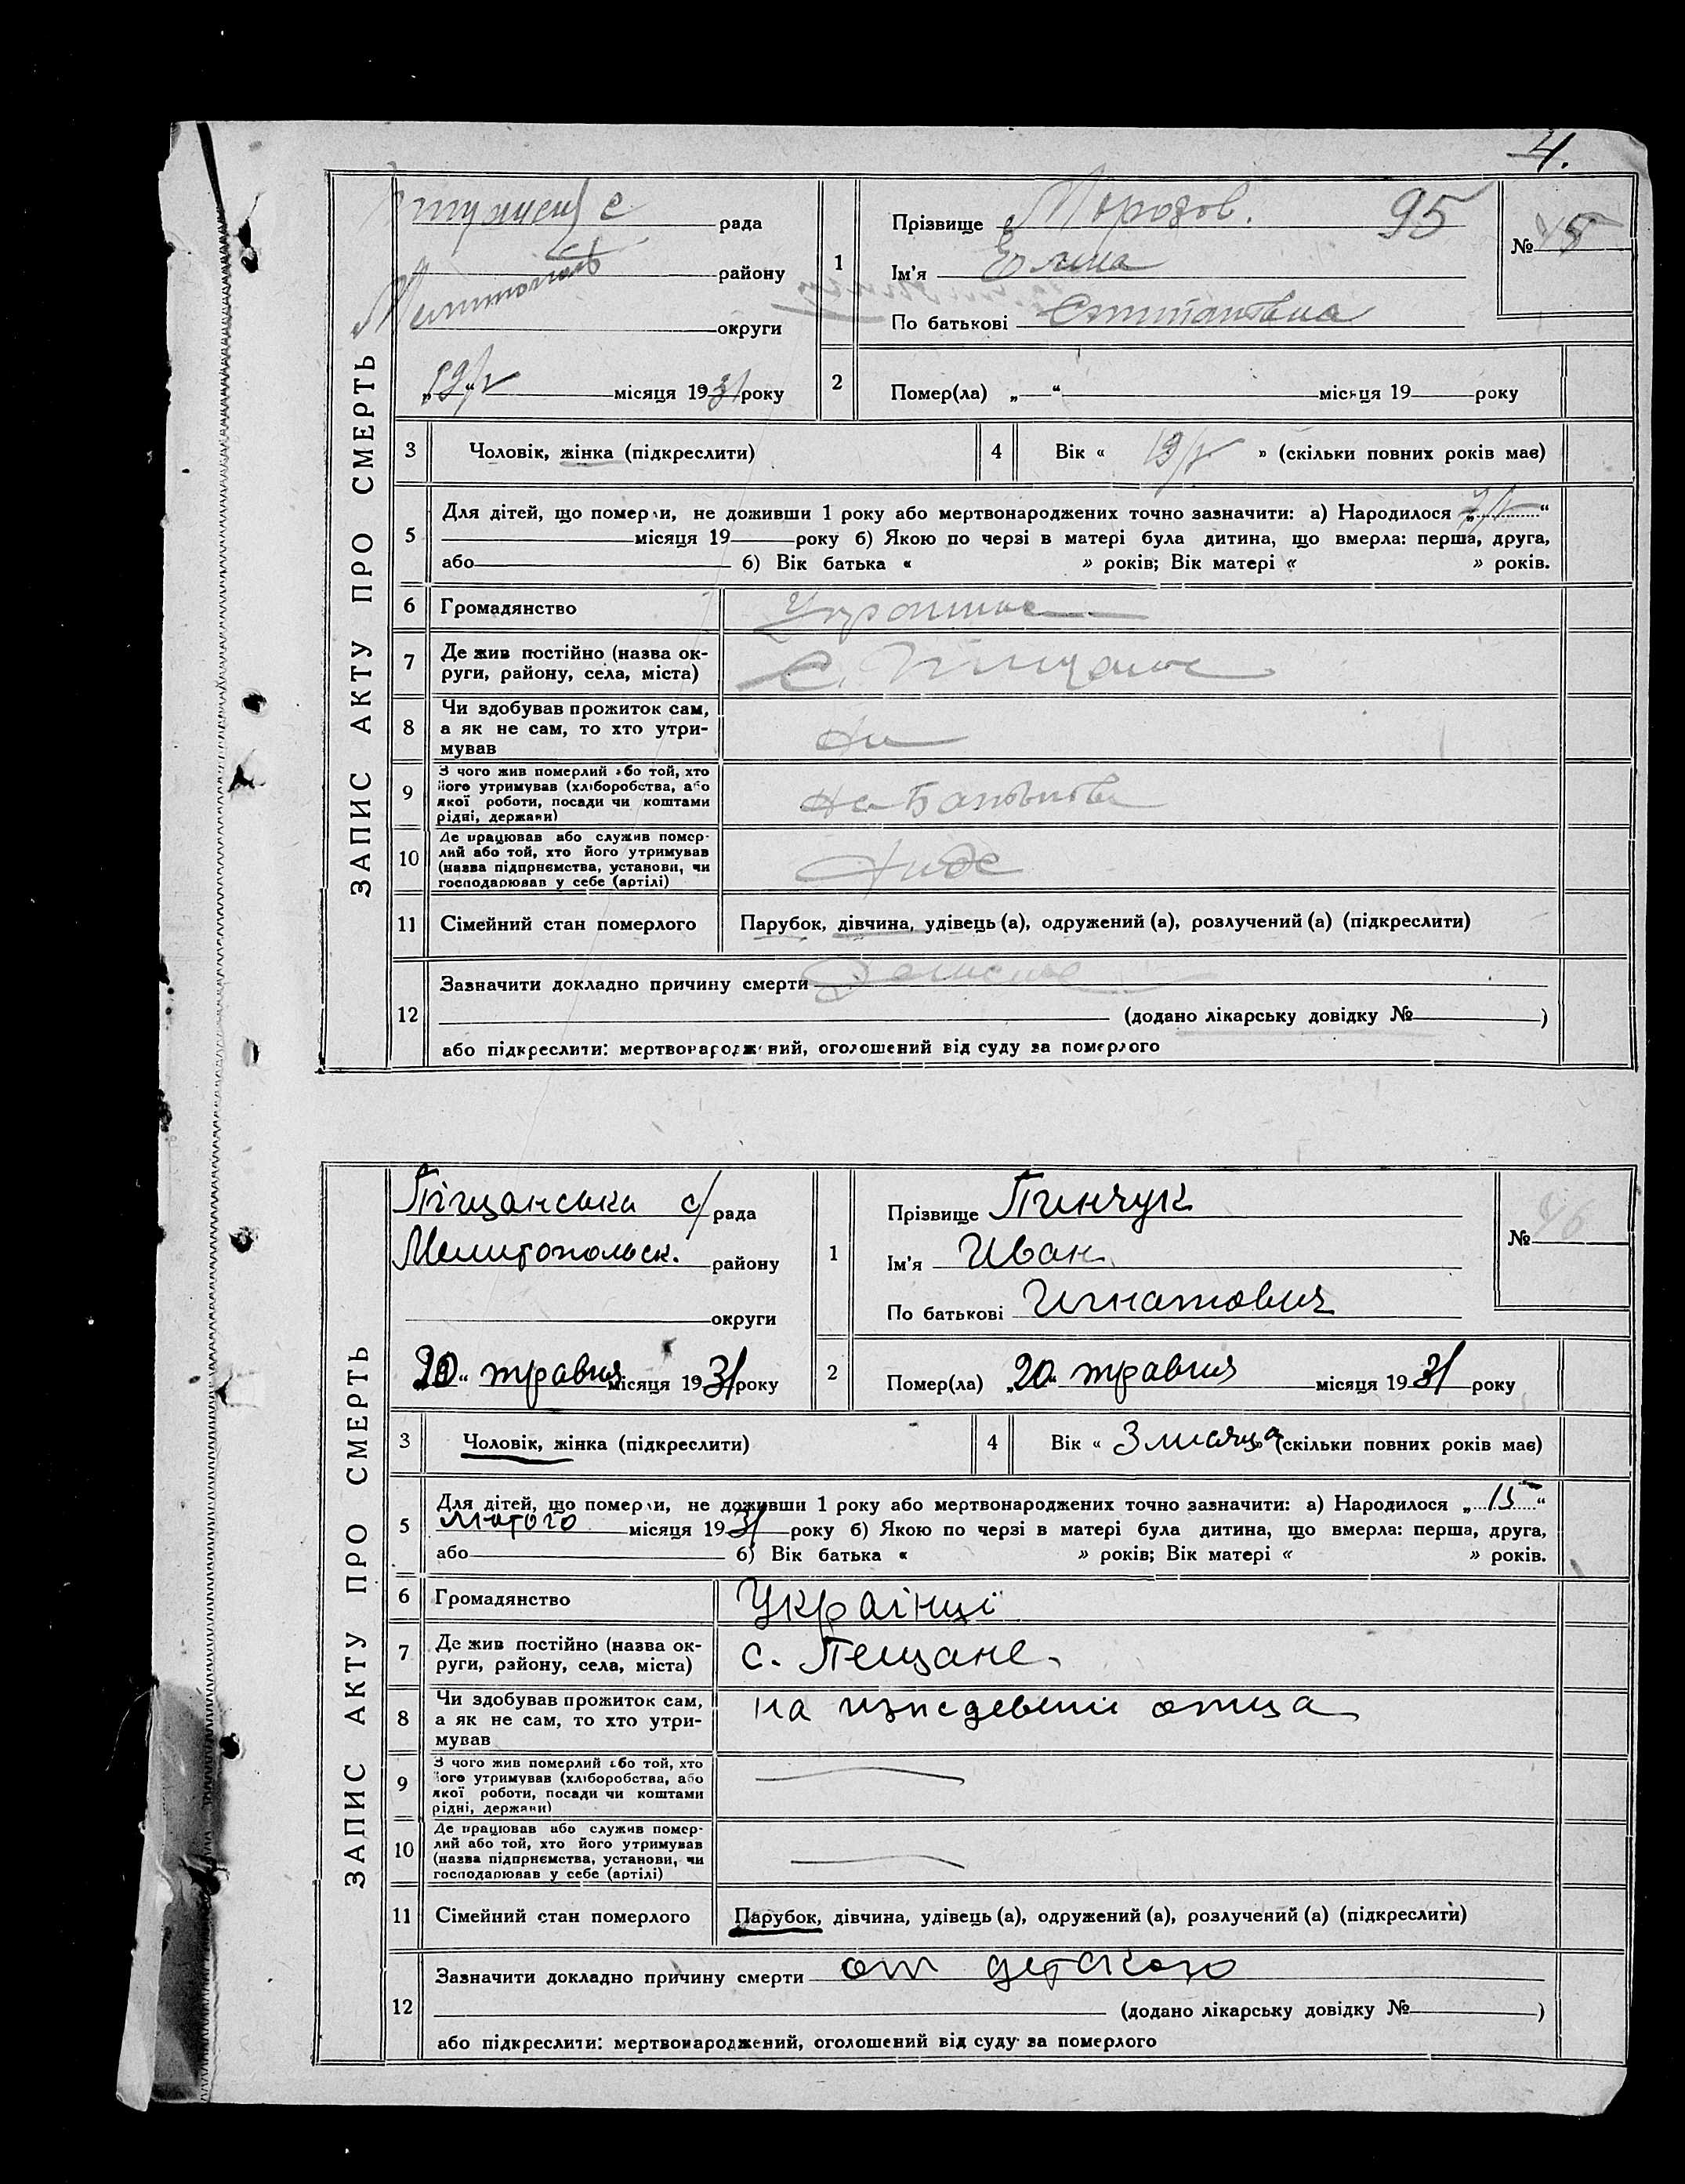 4.
ЗАПИС АКТУ ПРО СМЕРТЬ
рада
району
округи
місяця 1931 року
1
Прізвище Морозов. 95
Ім'я
По батькові
№ 45
2
Помер(ла) „ “ місяця 19 року
3
Чоловік, жінка (підкреслити)
4
Вік « » (скільки повних років має)
5
Для дітей, що померли, не доживши 1 року або мертвонароджених точно зазначити: а) Народилося „ “
місяця 19 року б) Якою по черзі в матері була дитина, що вмерла: перша, друга,
або б) Вік батька « » років; Вік матері « » років.
6
Громадянство
7
Де жив постійно (назва ок-
руги, району, села, міста)
с.
8
Чи здобував прожиток сам,
а як не сам, то хто утри-
мував
Ни
9
З чого жив померлий або той, хто
його утримував (хліборобства, або
якої роботи, посади чи коштами
рідні, держави)
10
Де працював або служив помер-
лий або той, хто його утримував
(назва підприємства, установи, чи
господарював у себе (артілі)
Ниде
11
Сімейний стан померлого
Парубок, дівчина, удівець (а), одружений (а), розлучений (а) (підкреслити)
12
Зазначити докладно причину смерти
(додано лікарську довідку № )
або підкреслити: мертвонароджений, оголошений від суду за померлого
ЗАПИС АКТУ ПРО СМЕРТЬ
Піщанська с/рада
Мелитопольск. району
округи
20 “ травня місяця 1931 року
1
Прізвище Пинчук
Ім'я Иван
По батькові Игнатович
№ 46
2
Помер(ла) „20“ травня місяця 1931 року
3
Чоловік, жінка (підкреслити)
4
Вік « 3 місяца » (скільки повних років має)
5
Для дітей, що померли, не доживши 1 року або мертвонароджених точно зазначити: а) Народилося „15“
лютого місяця 1931 року б) Якою по черзі в матері була дитина, що вмерла: перша, друга,
або б) Вік батька « » років; Вік матері « » років.
6
Громадянство
Українці
7
Де жив постійно (назва ок-
руги, району, села, міста)
с. Пещане.
8
Чи здобував прожиток сам,
а як не сам, то хто утри-
мував
на отца
9
З чого жив померлий або той, хто
його утримував (хліборобства, або
якої роботи, посади чи коштами
рідні, держави)
10
Де працював або служив помер-
лий або той, хто його утримував
(назва підприємства, установи, чи
господарював у себе (артілі)
11
Сімейний стан померлого
Парубок, дівчина, удівець (а), одружений (а), розлучений (а) (підкреслити)
12
Зазначити докладно причину смерти от детского
(додано лікарську довідку № )
або підкреслити: мертвонароджений, оголошений від суду за померлого